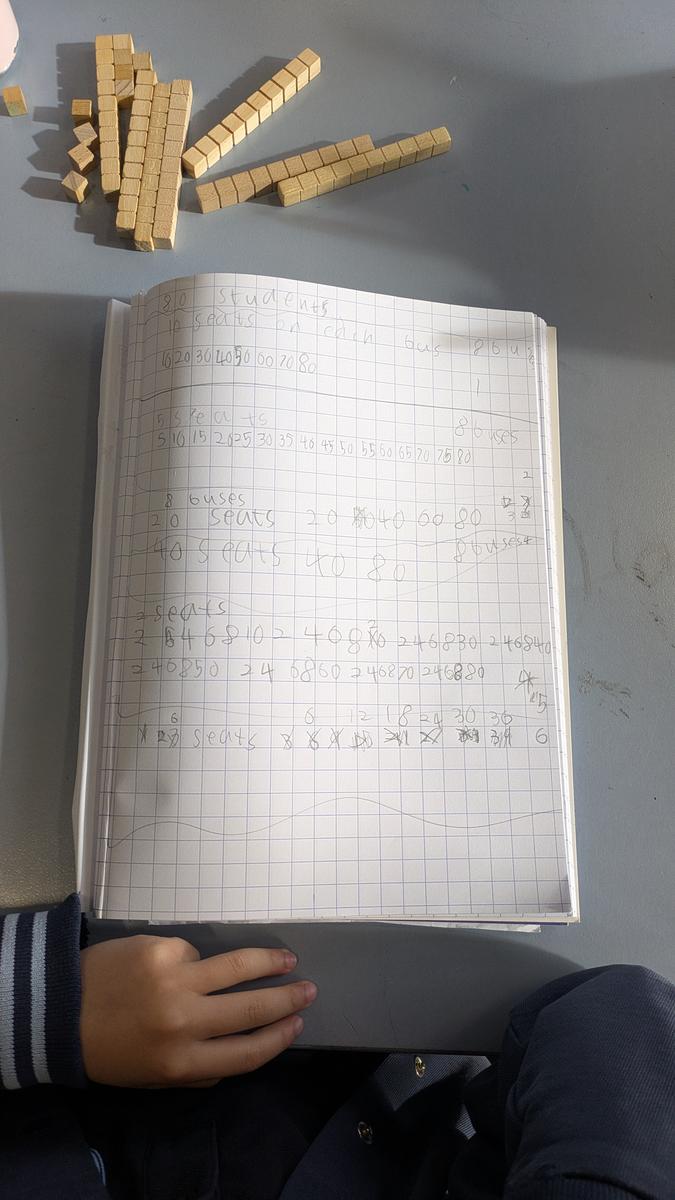 80 students
10 seats on each bus 8 bus
10 20 30 40 50 60 70 80
1
5 seats 8 buses
5 10 15 20 25 30 35 40 45 50 55 60 65 70 75 80
2
8 buses
20 seats 20 40 60 80 3
40 seats 40 80 8 buses 4
2 seats
2 4 6 8 10 2 4 6 8 20 2 4 6 8 30 2 4 6 8 40
2 4 6 8 50 2 4 6 8 60 2 4 6 8 70 2 4 6 8 80
5
6 6 12 18 24 30 36
seats 6